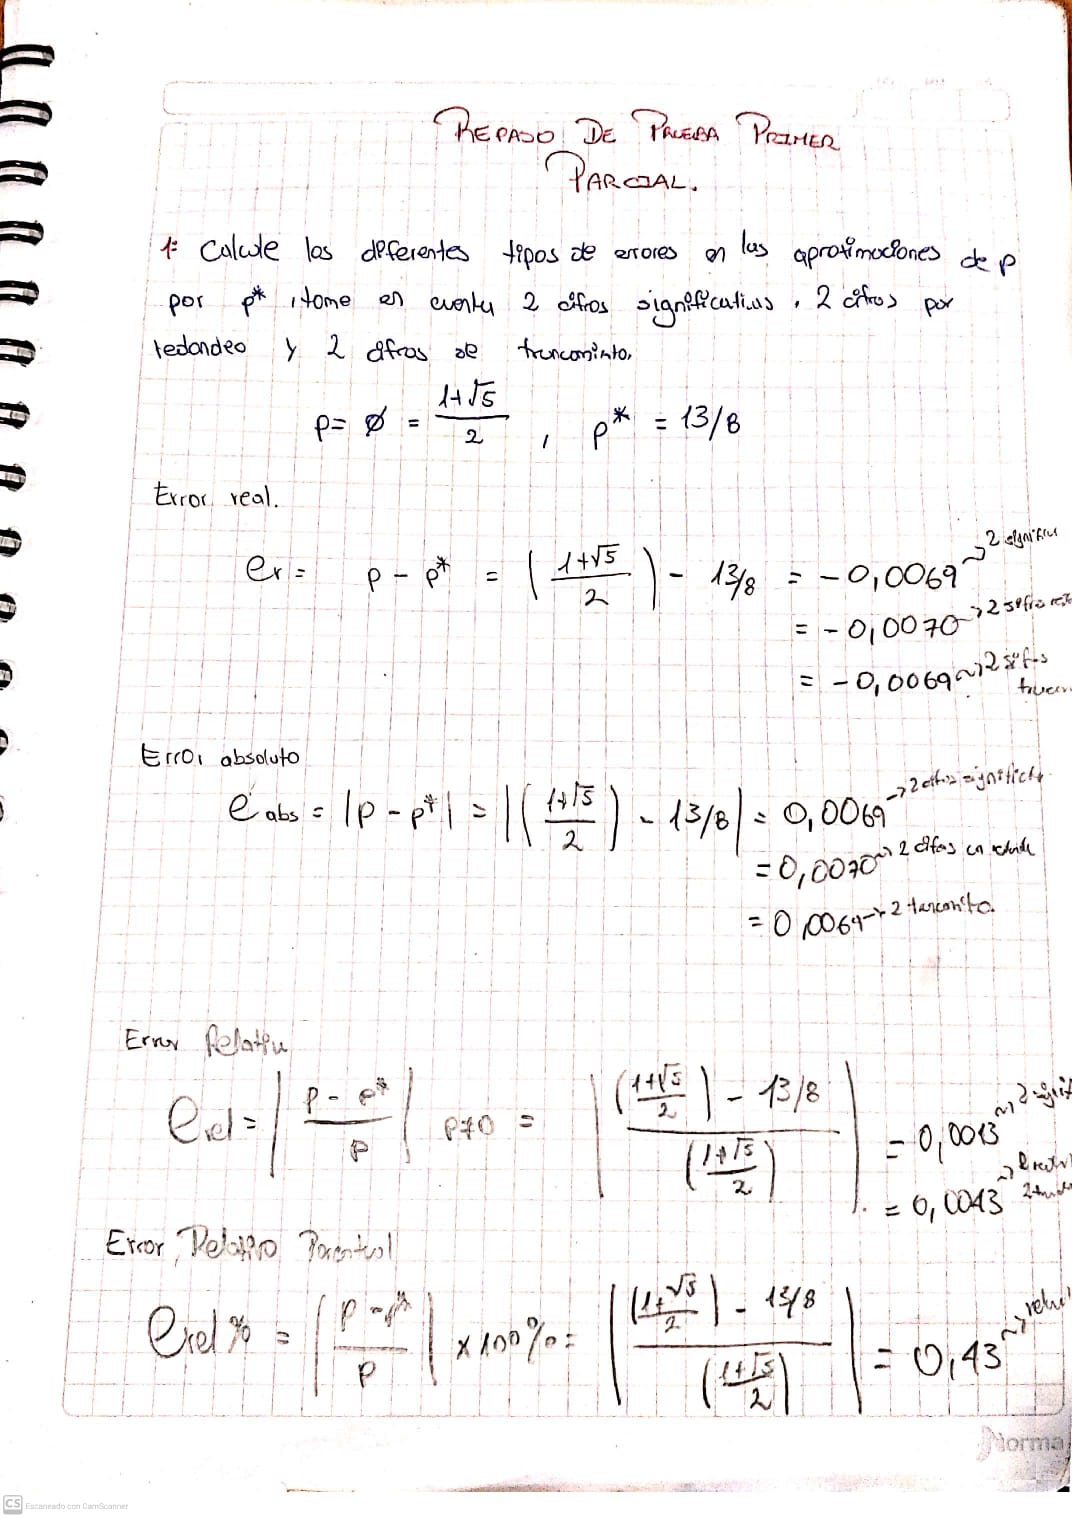 REPASO DE PRUEBA PRIMER
PARCIAL.
1: Calcule los diferentes tipos de errores en las aproximaciones de p
por p* , tome en cuenta 2 cifras significativas, 2 cifras por
redondeo y 2 cifras de truncamiento.
p = ø = (1+√5)/2 , p* = 13/8
Error real.
er = p - p* = ((1+√5)/2) - 13/8 = -0,0069 → 2 signific
= -0,0070 → 2 cifra
= -0,0069 → 2 cifras
trunca
Error absoluto
e abs = |p - p*| = |((1+√5)/2) - 13/8| = 0,0069 → 2 cifras
= 0,0070 → 2 cifras en
= 0,0069 → 2
Error Relativo
erel = |(p - p*)/p| p≠0 = |(((1+√5)/2) - 13/8)/((1+√5)/2)| = 0,0013 → 2
= 0,0043
Error Relativo Porcentual
erel % = |(p - p*)/p| x 100% = |(((1+√5)/2) - 13/8)/((1+√5)/2)| = 0,43
Norma
CS Escaneado con CamScanner